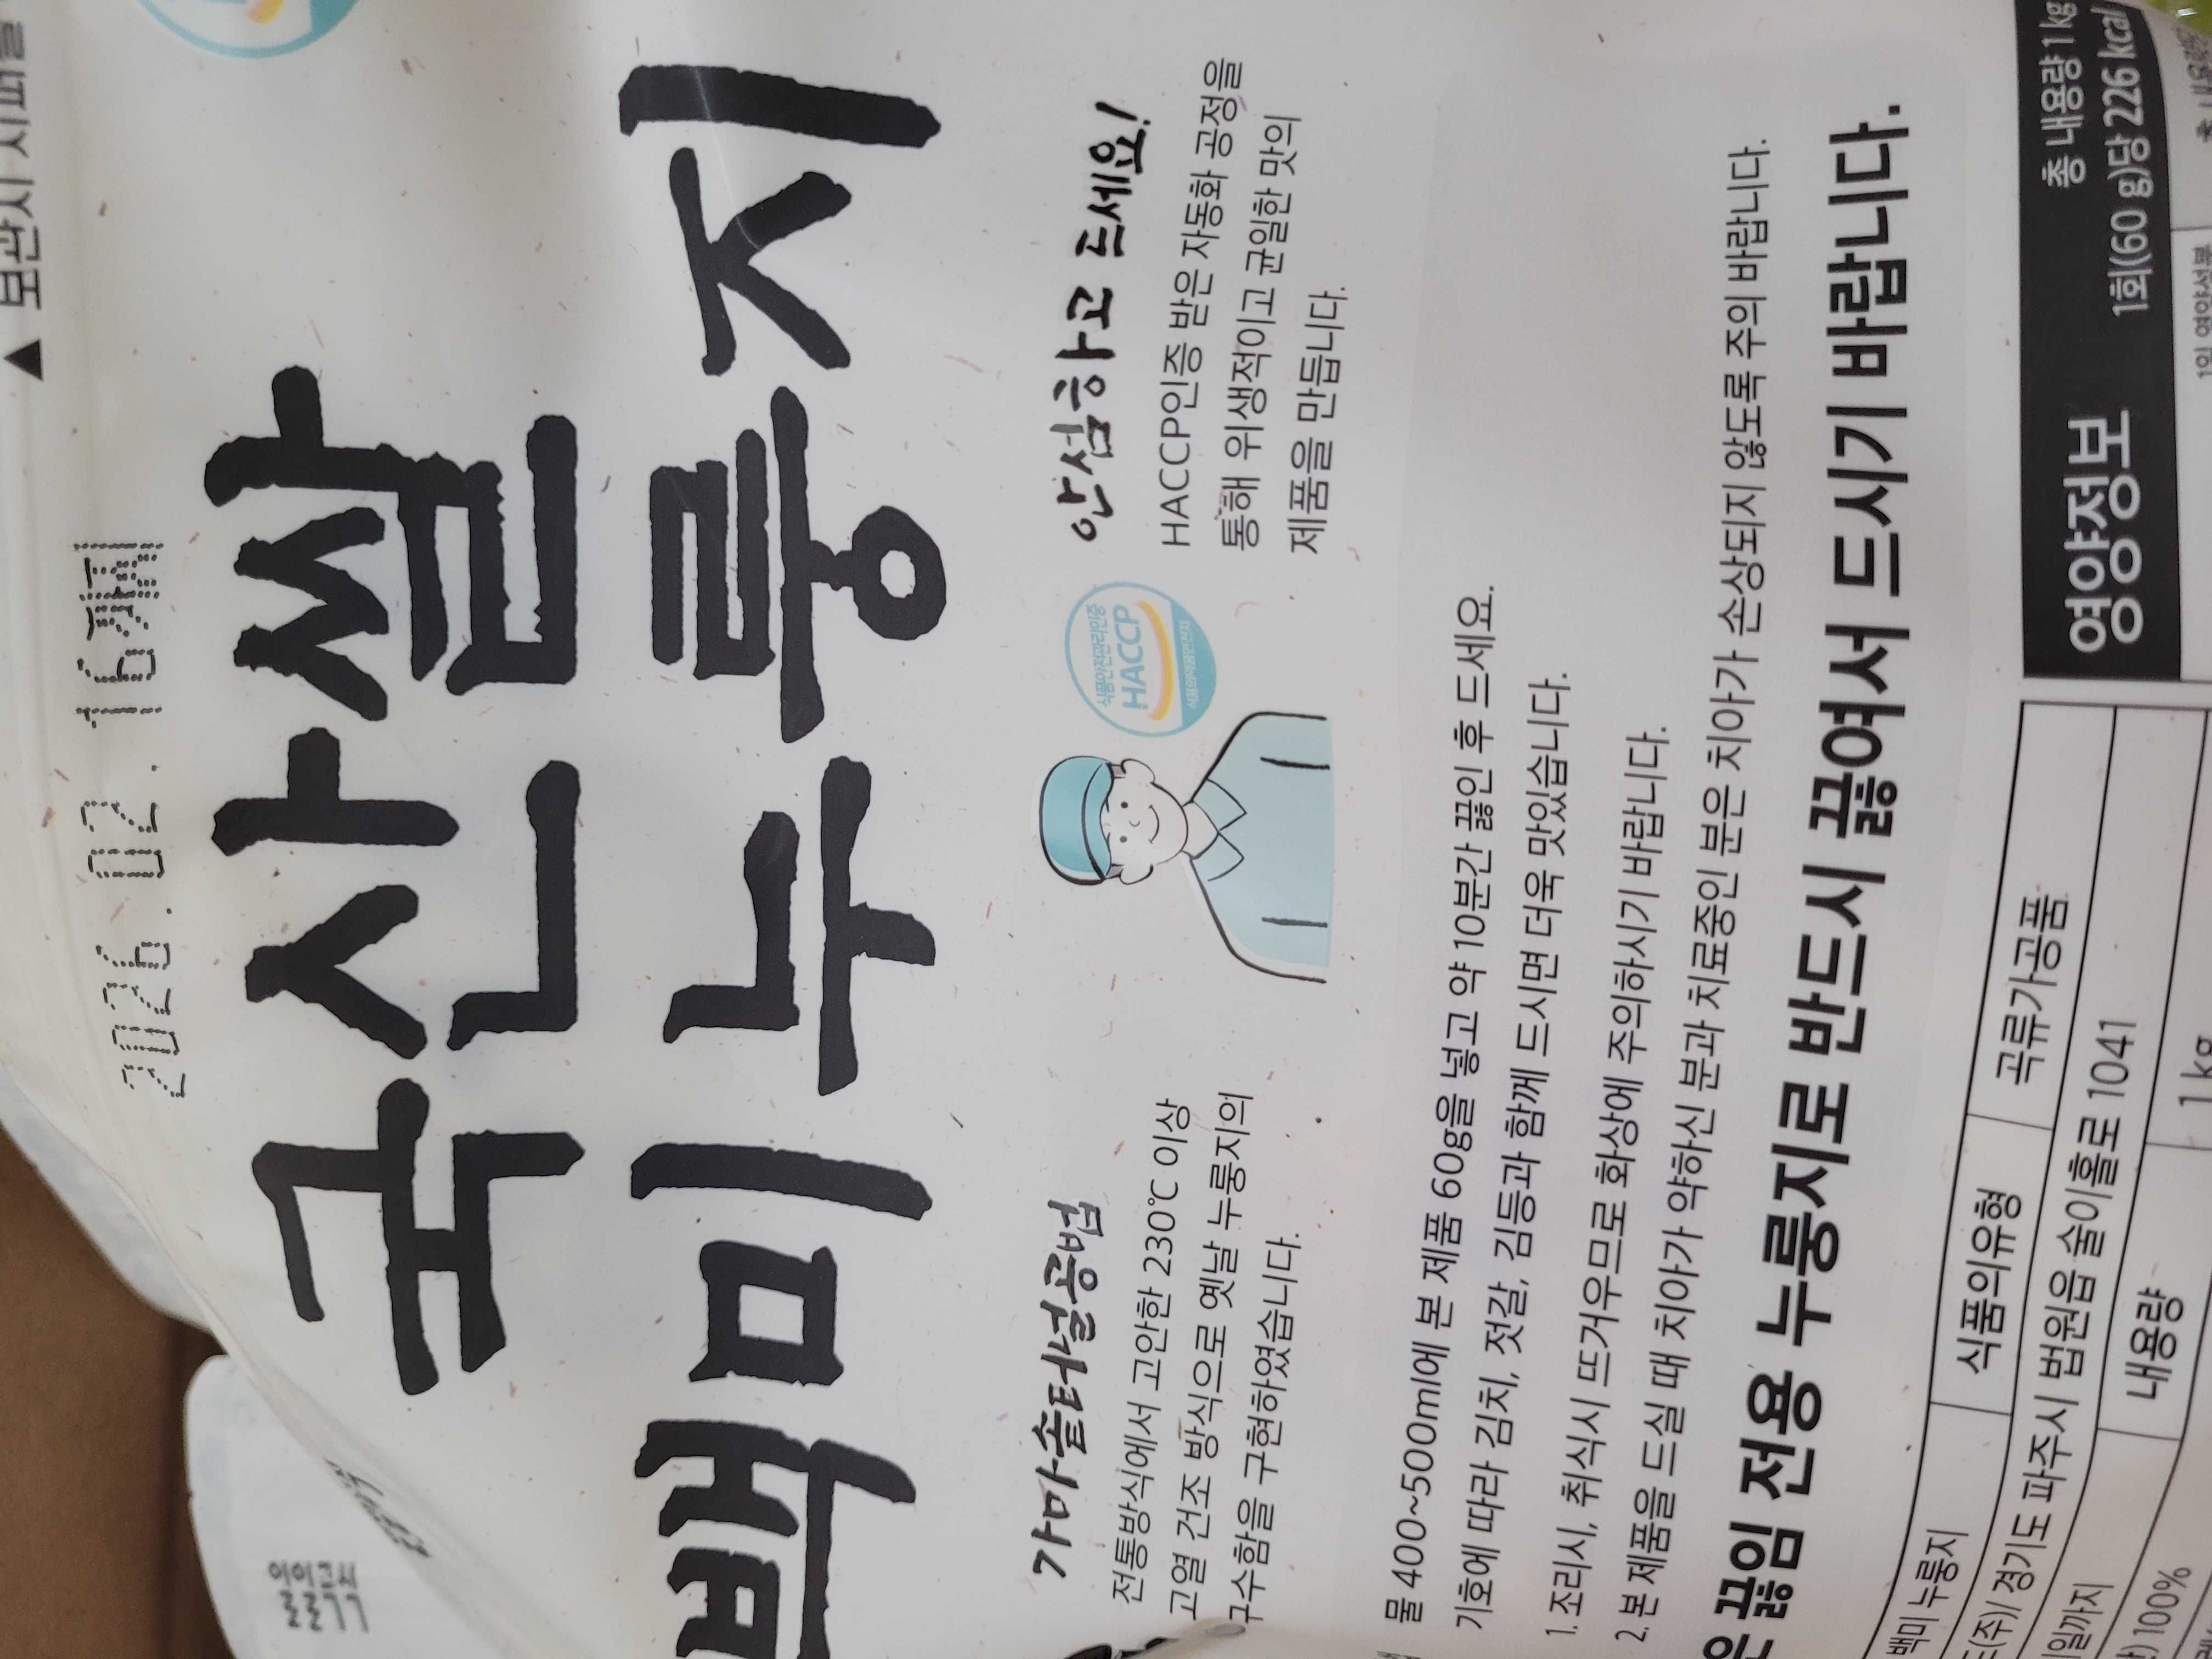 ▲ 보관시 지퍼를
2026. 02. 16
국산쌀
백미 누룽지
가마솥터널공법
전통방식에서 고안한 230℃ 이상
고열 건조 방식으로 옛날 누룽지의
구수함을 구현하였습니다.
식품안전관리인증
HACCP
식품의약품안전처
안심하고 드세요!
HACCP인증 받은 자동화 공정을
통해 위생적이고 균일한 맛의
제품을 만듭니다.
물 400~500ml에 본 제품 60g을 넣고 약 10분간 끓인 후 드세요.
기호에 따라 김치, 젓갈, 김등과 함께 드시면 더욱 맛있습니다.
1. 조리시, 취식시 뜨거우므로 화상에 주의하시기 바랍니다.
2. 본 제품을 드실 때 치아가 약하신 분과 치료중인 분은 치아가 손상되지 않도록 주의 바랍니다.
은 끓임 전용 누룽지로 반드시 끓여서 드시기 바랍니다.
백미 누룽지 식품의유형 곡류가공품
(주)/ 경기도 파주시 법원읍 술이홀로 1041
일까지 내용량 1kg
100%
영양정보
총 내용량 1kg
1회(60 g)당 226 kcal
1일 영양성분